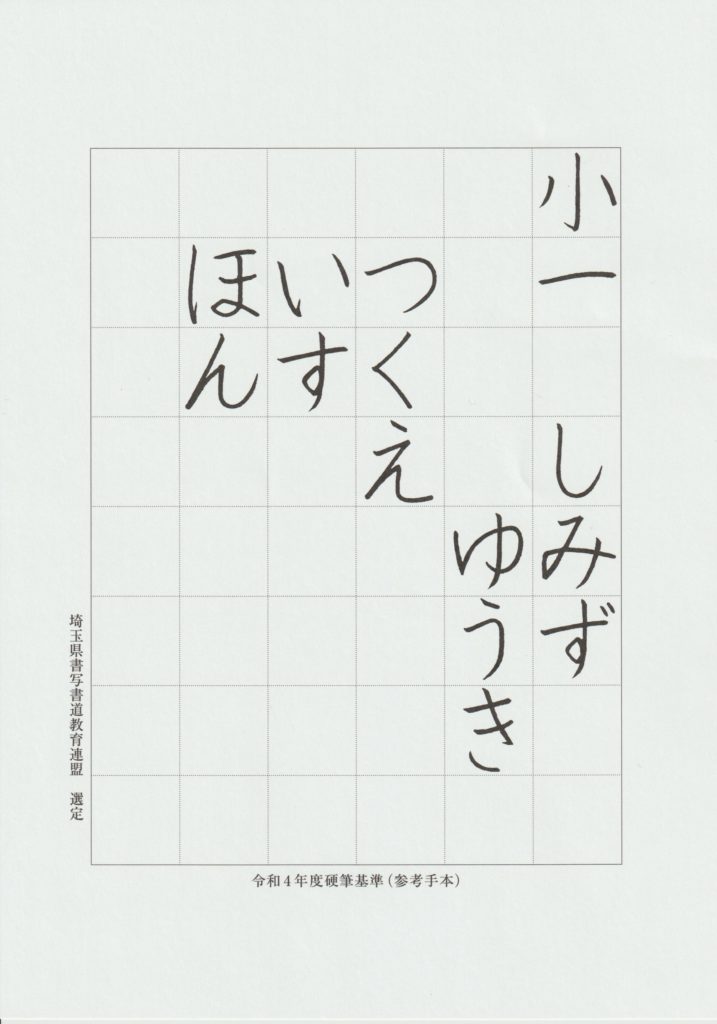 小一　しみず
ゆうき
つくえ
いす
ほん
埼玉県書写書道教育連盟　選定
令和4年度硬筆基準（参考手本）